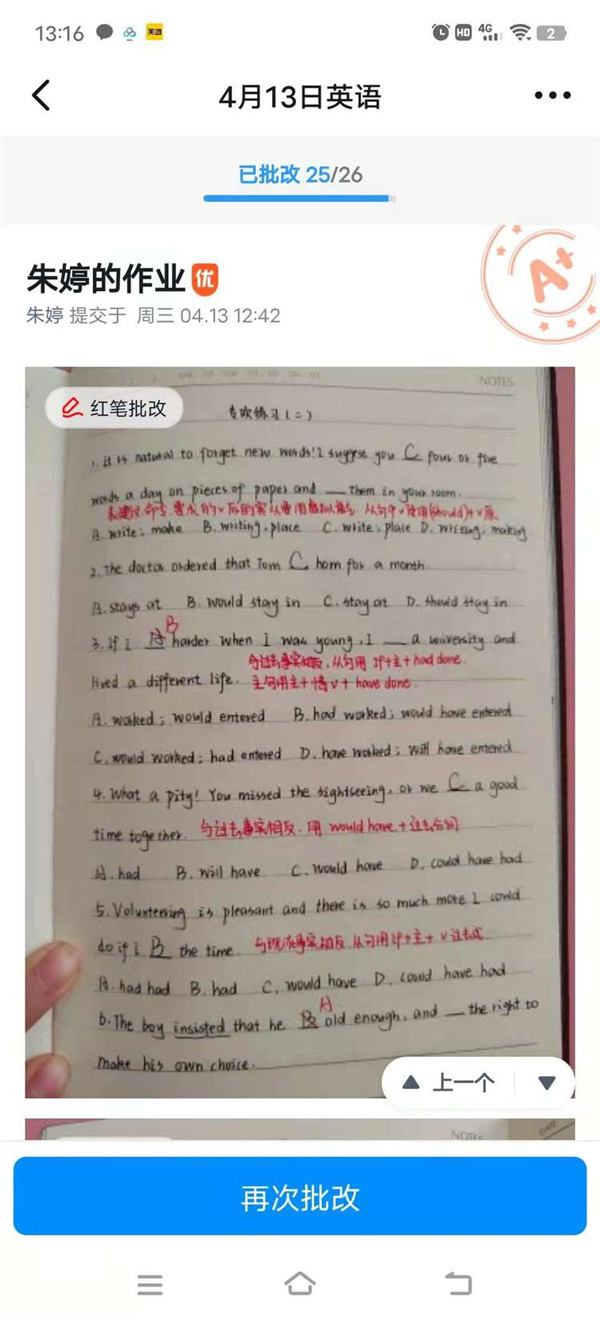 13:16
HD 4G 2
4月13日英语
已批改 25/26
朱婷的作业 优
A+
朱婷 提交于 周三 04.13 12:42
NOTES
红笔批改
专项练习(二)
1. It is natural to forget new words! I suggese you C four or five
words a day on pieces of paper and __ them in your room.
A. write; make B. writing, place C. write; place D. writing; making
2. The doctor ordered that Tom C hom for a month.
A. stays at B. Would stay in C. stay at D. should stay in
B
3. If i harder when I was young, I __ a university and
与过去事实相反,从句用 If+主+had done.
lived a different life. 主句用主+情v+have done.
A. worked; would entered B. had worked; would have entered
C. would worked; had entered D. have worked; will have entered
4. What a pity! You missed the sightseeing, or we C a good
time together. 与过去事实相反. 用 would have+过去分词
A. had B. will have C. would have D. could have had
5. Volunteering is pleasant and there is so much more I could
do if i B the time. 与现在事实相反,从句用If+主+v过去式
A. had had B. had C. would have D. could have had
A
6. The boy insisted that he B old enough, and __ the right to
make his own choice.
上一个
NOTES
DATE
再次批改